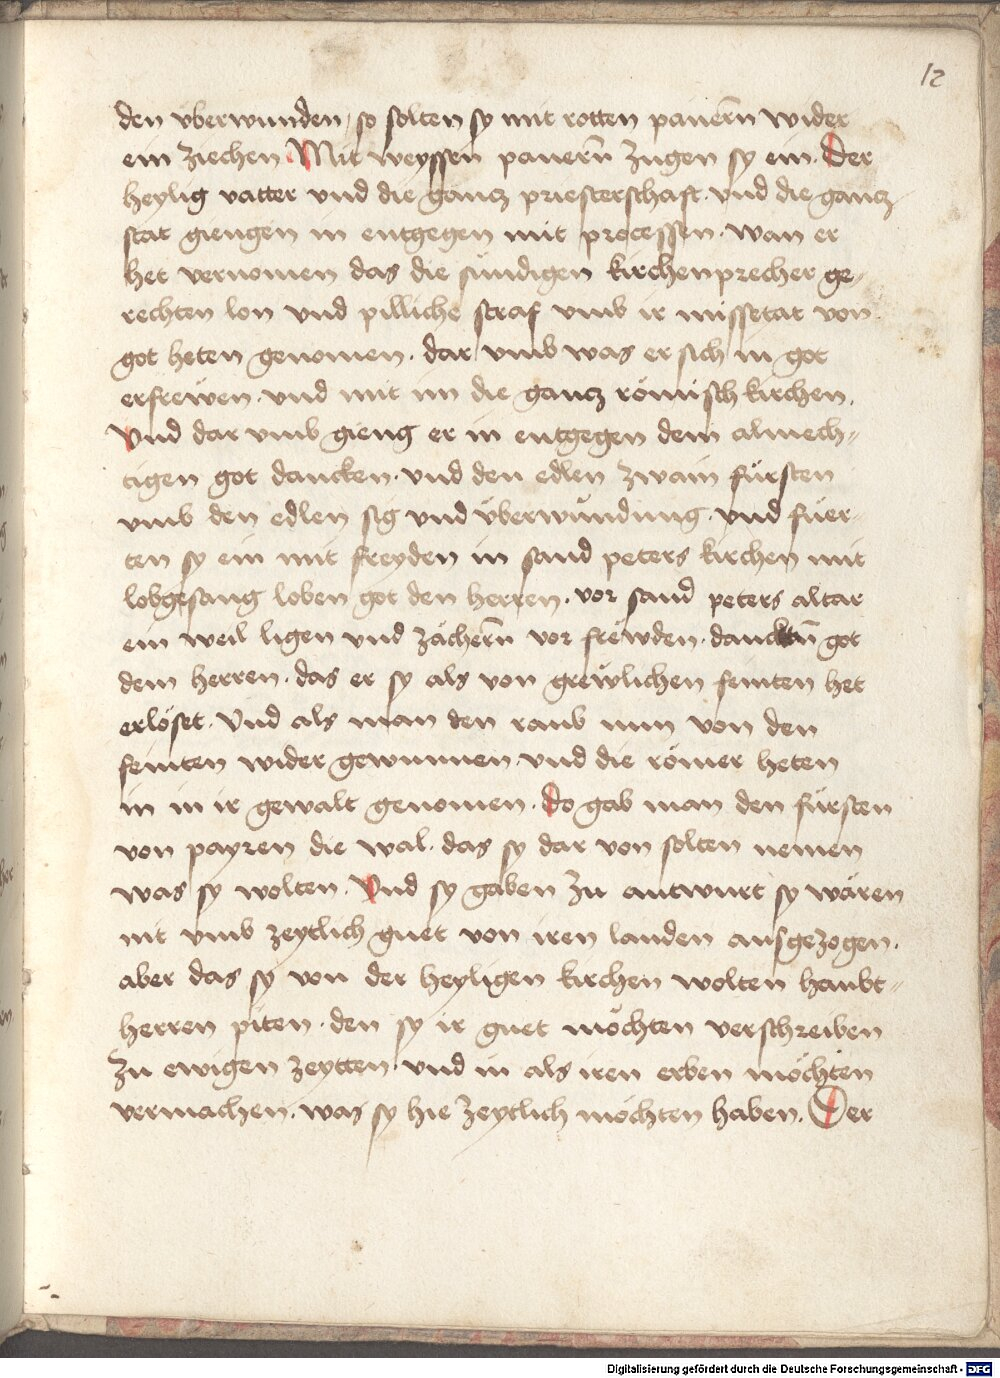 12
den vberwunden / so solten sy mit rotten panern̄ wider
ein ziechen. Mit weyssen panern̄ zugen sy ein. Der
heylig vatter vnd die gancz priesterschaft. vnd die gancz
stat giengen in entgegen mit processen. wan er
het vernomen das die sündigen kirchenprecher ge-
rechten lon vnd pilliche straf vmb ir missetat von
got heten genomen. dar vmb was er sich in got
erfrewen. vnd mit im die gancz römisch kirchen.
Vnd dar vmb gieng er in entgegen dem almech-
tigen got dancken. vnd den edlen zwain fürsten
vmb den edlen sig vnd überwündung. vnd füer-
ten sy ein mit freyden in sand peters kirchen mit
lobgesang loben got den herren. vor sand peters altar
ein weil ligen vnd zächern̄ vor frewden. danckten̄ got
dem herren. das er sy als von grewlichen feinten het
erlöset. Vnd als man den raub nun von den
feinten wider gewunnen. vnd die römer heten
in in ir gewalt genomen. do gab man den fürsten
von payren die wal. das sy dar von solten nemen
was sy wolten. Vnd sy gaben zu antwurt sy wären
nit vmb zeytlich guet von iren landen ausgezogen.
aber das sy von der heyligen kirchen wolten haubt-
herren piten. den sy ir guet möchten verschreiben
zu ewigen zeytten. vnd in als iren erben möchten
vermachen. was sy hie zeytlich möchten haben. Der
Digitalisierung gefördert durch die Deutsche Forschungsgemeinschaft - DFG